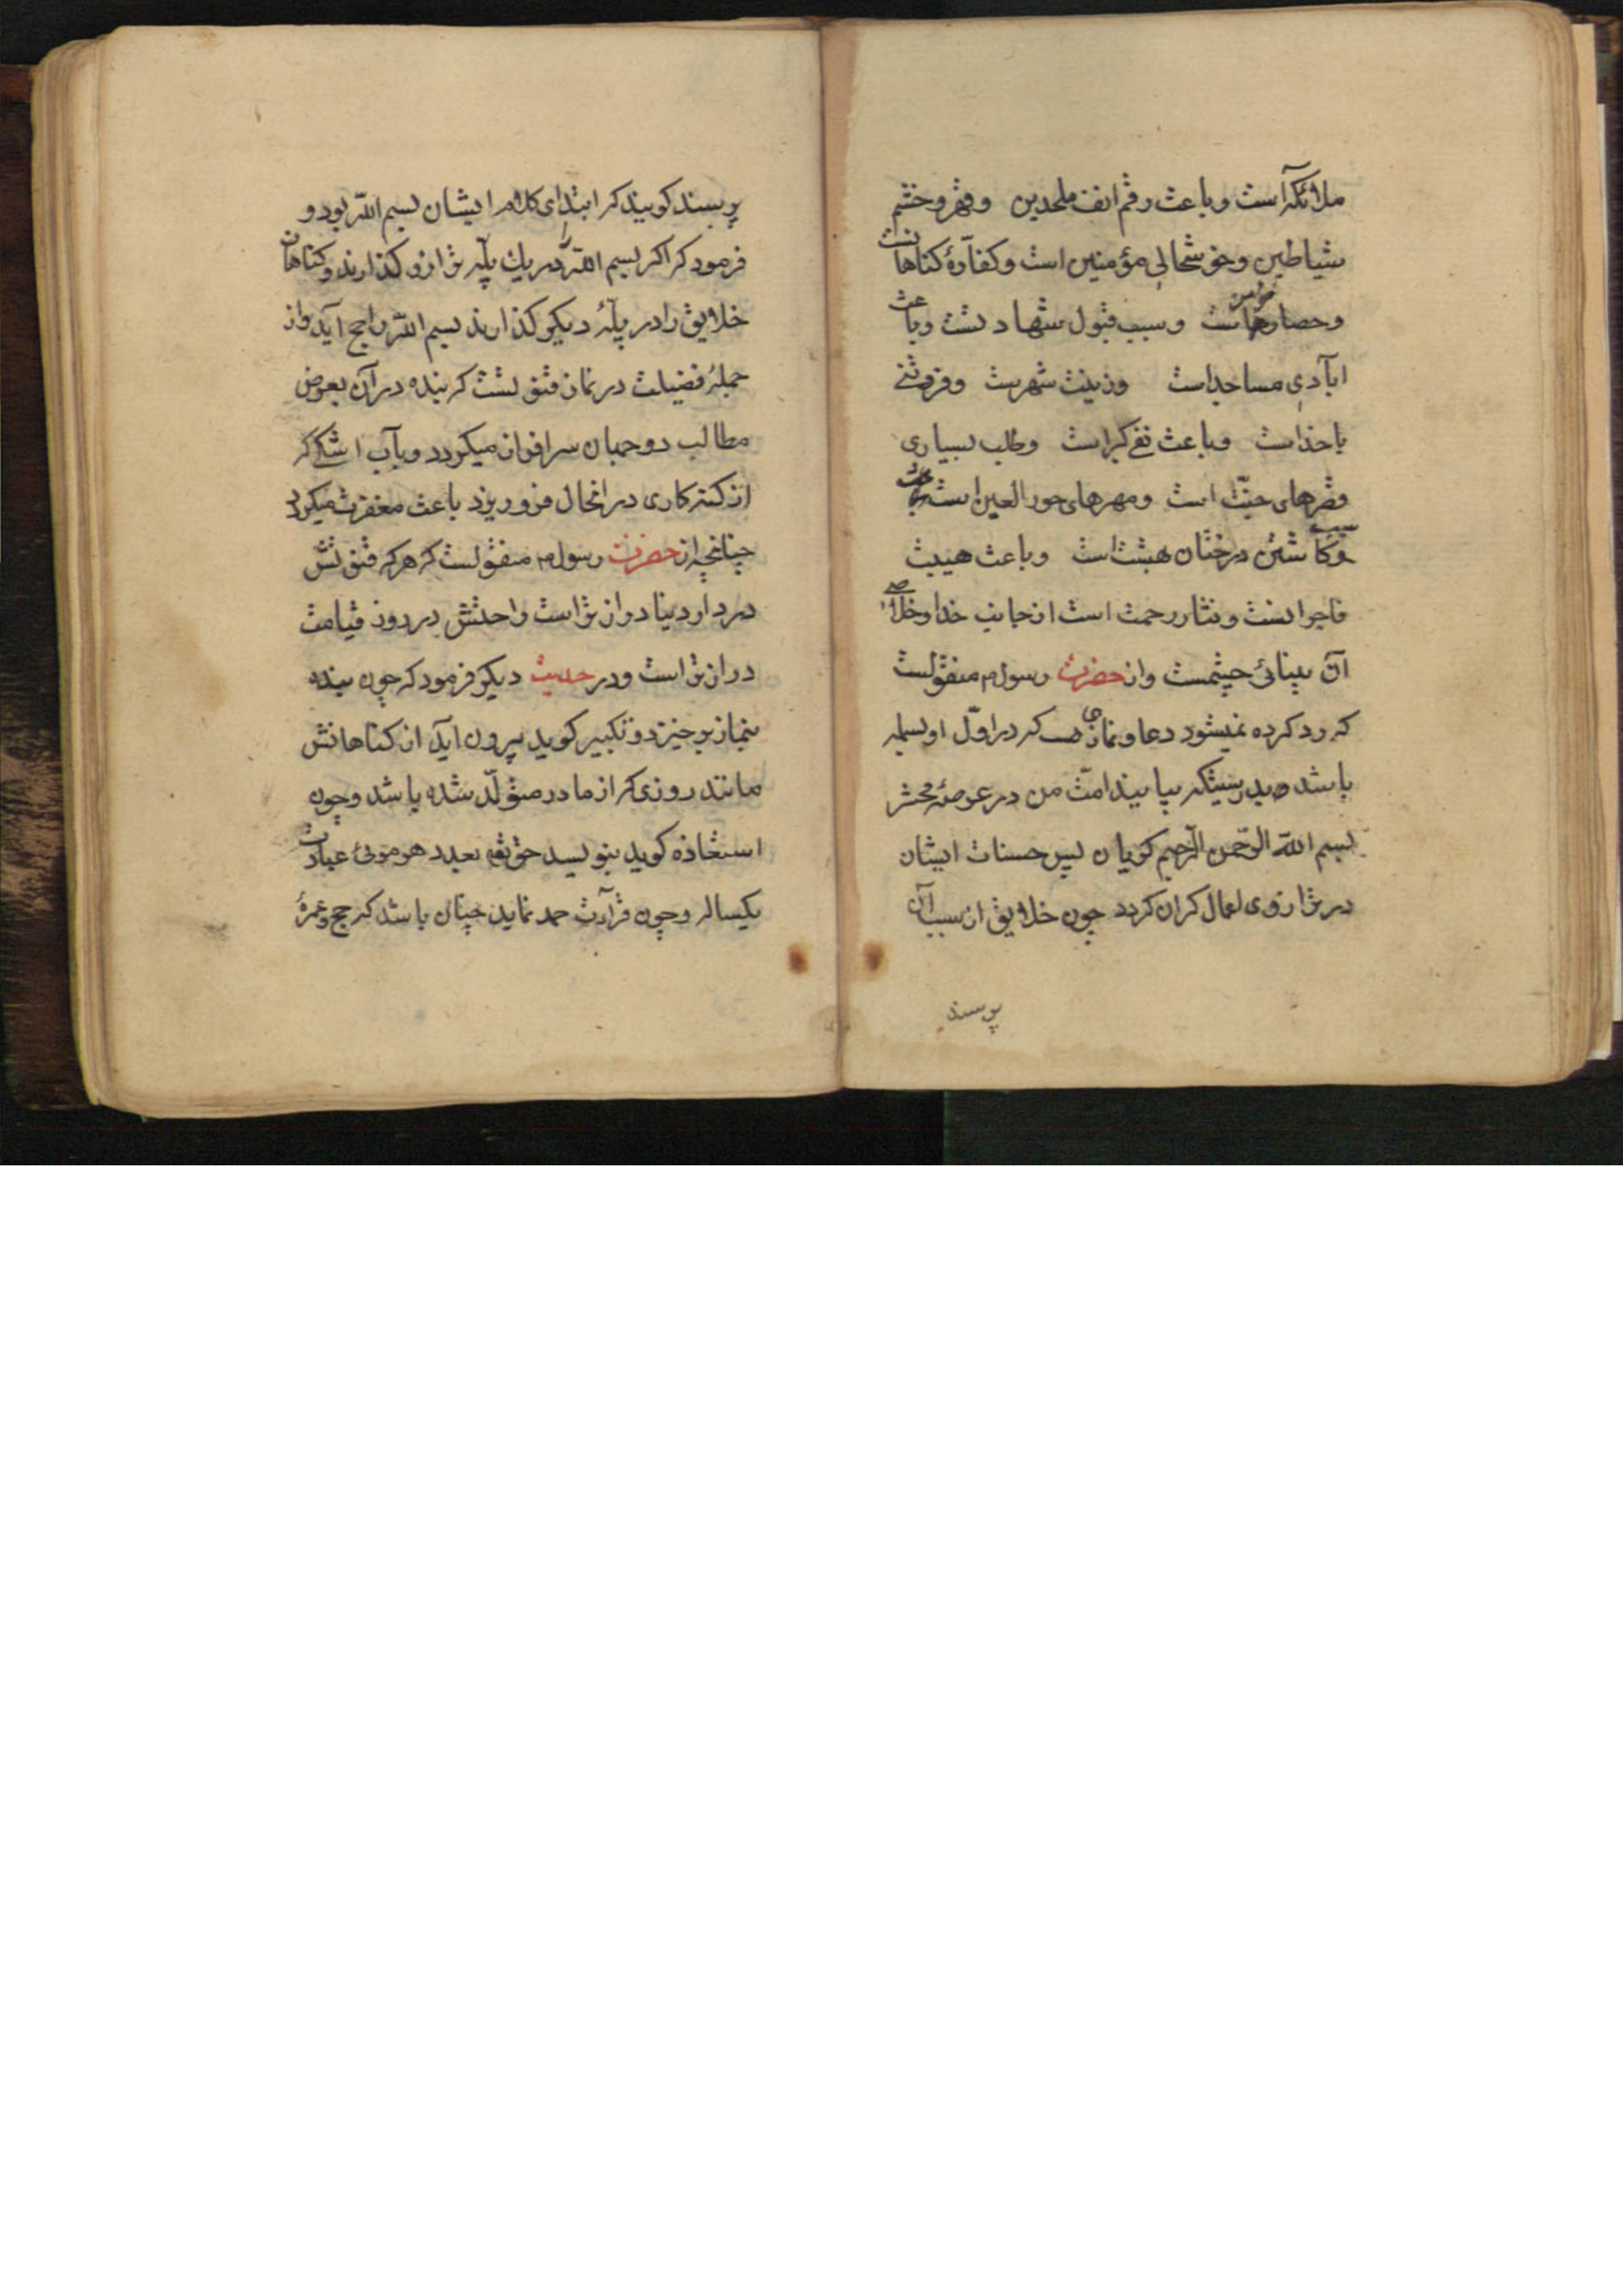 ملائکه است و باعث رقم انف ملحدین و قهر و ختم
شیاطین و خوشحالی مؤمنین است و کفارهٔ کناهانست
و حصار مؤمن هاست و سبب قبول شهادتست و باعث
ابآدی مساجد است و زینت شهرست و فروتنی
با خداست و باعث نفی کبر است و طلب بسیاری
قصرهای جنّت است و مهرهای حور العین است
و کاشتن درختان بهشت است و باعث هیبت
فاجرانست و نثار رحمت است از جانب خدا و خلاصه
آن بینائی چشمست و از حضرت رسول م منقولست
که رد کرده نمیشود دعا و نمازی که در اوّل او بسمله
باشد و بدرستیکه بیایند امت من در عرصهٔ محشر
بسم الله الرّحمن الرّحیم کویان پس حسنات ایشان
در ترازوی اعمال کران کردد چون خلایق از سبب آن
پرسند
پرسند کویند که ابتدای کلام ایشان بسم اللّه بود و
فرمود که اکر بسم اللّه را در یك پلّه ترازو کذارند و کناهان
خلایق را در پلّهٔ دیکر کذارند بسم اللّه راجح آید و از
جملهٔ فضیلت در نماز قنوتست که بنده در آن بعرض
مطالب دو جهان سرافراز میکردد و بآب اشکی که
از کنه کاری در انحال فرو ریزد باعث مغفرت میکردد
چنانچه از حضرت رسول م منقولست که هر که قنوتش
در دار دنیا درازتر است راحتش در روز قیامت
درازتر است و در حدیث دیکر فرمود که چون بنده
بنماز برخیزد و تکبیر کوید بیرون آید از کناهانش
مانند روزی که از مادر متولّد شده باشد و چون
استعاذه کوید بنویسد حق تعم بعدد هر موئی عبادت
یکساله و چون قرآءت حمد نماید چنان باشد که حج و عمرهٔ